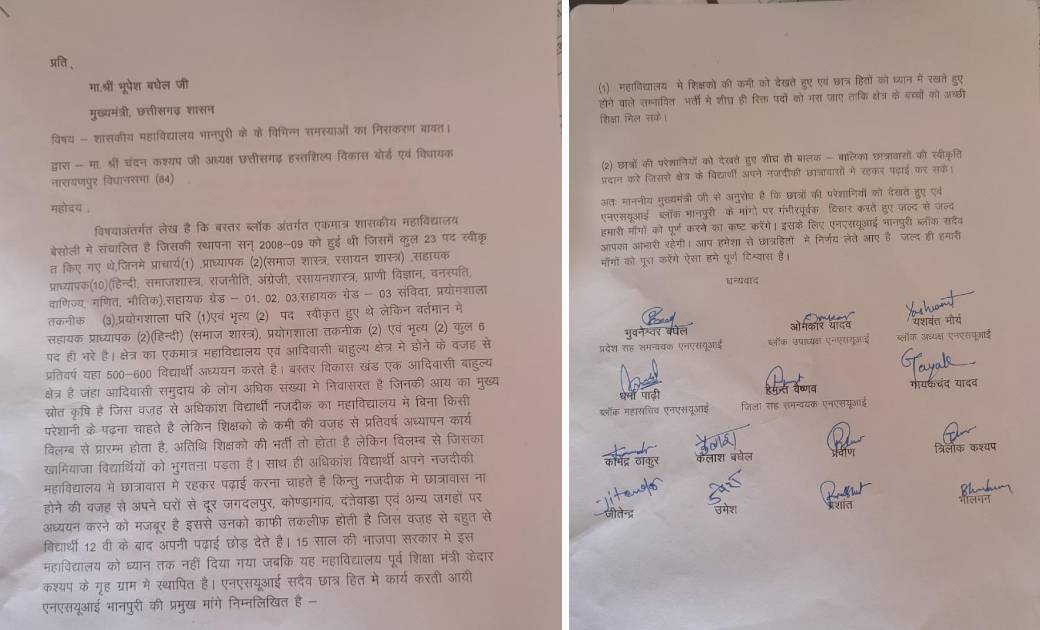 प्रति ,
मा.श्रीं भूपेश बघेल जी
मुख्यमंत्री, छत्तीसगढ़ शासन
विषय – शासकीय महाविद्यालय भानपुरी के के विभिन्न समस्याओं का निराकरण बावत।
द्वारा – मा. श्रीं चंदन कश्यप जी अध्यक्ष छत्तीसगढ़ हस्तशिल्प विकास बोर्ड एवं विधायक
नारायणपुर विधानसभा (84)
महोदय ,
विषयाअंतर्गत लेख है कि बस्तर ब्लॉक अंतर्गत एकमात्र शासकीय महाविद्यालय
बेसोली मे संचालित है जिसकी स्थापना सन् 2008–09 को हुई थी जिसमें कुल 23 पद स्वीकृ
त किए गए थे,जिनमे प्राचार्य(1) ,प्राध्यापक (2)(समाज शास्त्र, रसायन शास्त्र) ,सहायक
प्राध्यापक(10)(हिन्दी, समाजशास्त्र, राजनीति, अंग्रेजी, रसायनशास्त्र, प्राणी विज्ञान, वनस्पति,
वाणिज्य, गणित, भौतिक),सहायक ग्रेड – 01, 02, 03,सहायक ग्रेड – 03 संविदा, प्रयोगशाला
तकनीक (3),प्रयोगशाला परि (1)एवं भृत्य (2) पद स्वीकृत हुए थे लेकिन वर्तमान मे
सहायक प्राध्यापक (2)(हिन्दी) (समाज शास्त्र), प्रयोगशाला तकनीक (2) एवं भृत्य (2) कुल 6
पद ही भरे है। क्षेत्र का एकमात्र महाविद्यालय एवं आदिवासी बाहुल्य क्षेत्र मे होने के वजह से
प्रतिवर्ष यहा 500–600 विद्यार्थी अध्ययन करते है। बस्तर विकास खंड एक आदिवासी बाहुल्य
क्षेत्र है जंहा आदिवासी समुदाय के लोग अधिक संख्या मे निवासरत है जिनकी आय का मुख्य
स्रोत कृषि है जिस वजह से अधिकांश विद्यार्थी नजदीक का महाविद्यालय मे बिना किसी
परेशानी के पढ़ना चाहते है लेकिन शिक्षको के कमी की वजह से प्रतिवर्ष अध्यापन कार्य
विलम्ब से प्रारम्भ होता है, अतिथि शिक्षको की भर्ती तो होता है लेकिन विलम्ब से जिसका
खामियाजा विद्यार्थियों को भुगतना पड़ता है। साथ ही अधिकांश विद्यार्थी अपने नजदीकी
महाविद्यालय मे छात्रावास मे रहकर पढ़ाई करना चाहते है किन्तु नजदीक मे छात्रावास ना
होने की वजह से अपने घरों से दूर जगदलपुर, कोण्डागांव, दंतेवाड़ा एवं अन्य जगहों पर
अध्ययन करने को मजबूर है इससे उनको काफी तकलीफ होती है जिस वजह से बहुत से
विद्यार्थी 12 वी के बाद अपनी पढ़ाई छोड़ देते है। 15 साल की भाजपा सरकार मे इस
महाविद्यालय को ध्यान तक नहीं दिया गया जबकि यह महाविद्यालय पूर्व शिक्षा मंत्री केदार
कश्यप के गृह ग्राम मे स्थापित है। एनएसयूआई सदैव छात्र हित मे कार्य करती आयी
एनएसयूआई भानपुरी की प्रमुख मांगे निम्नलिखित है –
(1) महाविद्यालय मे शिक्षको की कमी को देखते हुए एवं छात्र हितों को ध्यान मे रखते हुए
होने वाले सम्भावित भर्ती मे शीघ्र ही रिक्त पदों को भरा जाए ताकि क्षेत्र के बच्चों को अच्छी
शिक्षा मिल सके।
(2) छात्रों की परेशानियों को देखते हुए शीघ्र ही बालक – बालिका छात्रावासों की स्वीकृति
प्रदान करे जिससे क्षेत्र के विद्यार्थी अपने नजदीकी छात्रावासों मे रहकर पढ़ाई कर सके।
अतः माननीय मुख्यमंत्री जी से अनुरोध है कि छात्रों की परेशानियों को देखते हुए एवं
एनएसयूआई ब्लॉक भानपुरी के मांगो पर गंभीरपूर्वक विचार करते हुए जल्द से जल्द
हमारी माँगों को पूर्ण करने का कष्ट करेंगे। इसके लिए एनएसयूआई भानपुरी ब्लॉक सदैव
आपका आभारी रहेगी। आप हमेशा से छात्रहितों मे निर्णय लेते आए है जल्द ही हमारी
माँगों को पूरा करेंगे ऐसा हमे पूर्ण विश्वास है।
धन्यवाद
Yashwant
भुवनेश्वर बघेल ओमकार यादव यशवंत मौर्य
प्रदेश सह समन्वयक एनएसयूआई ब्लॉक उपाध्यक्ष एनएसयूआई ब्लॉक अध्यक्ष एनएसयूआई
धर्मा पाढ़ी हेमन्त वैष्णव गायकचंद यादव
ब्लॉक महासचिव एनएसयूआई जिला सह समन्वयक एनएसयूआई
कोमेंद्र ठाकुर कैलाश बघेल प्रवीण त्रिलोक कश्यप
Jitendra
जीतेन्द्र उमेश प्रशांत भीलमन